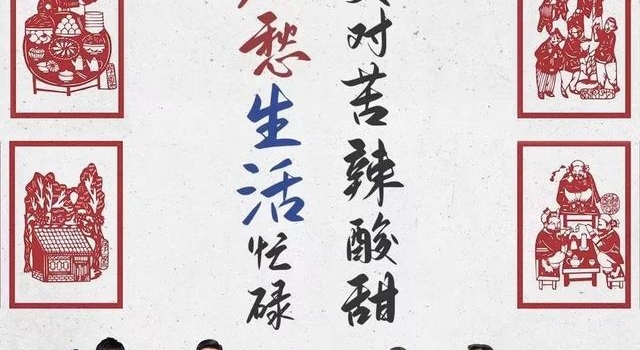 对苦辣酸甜
愁生活忙碌